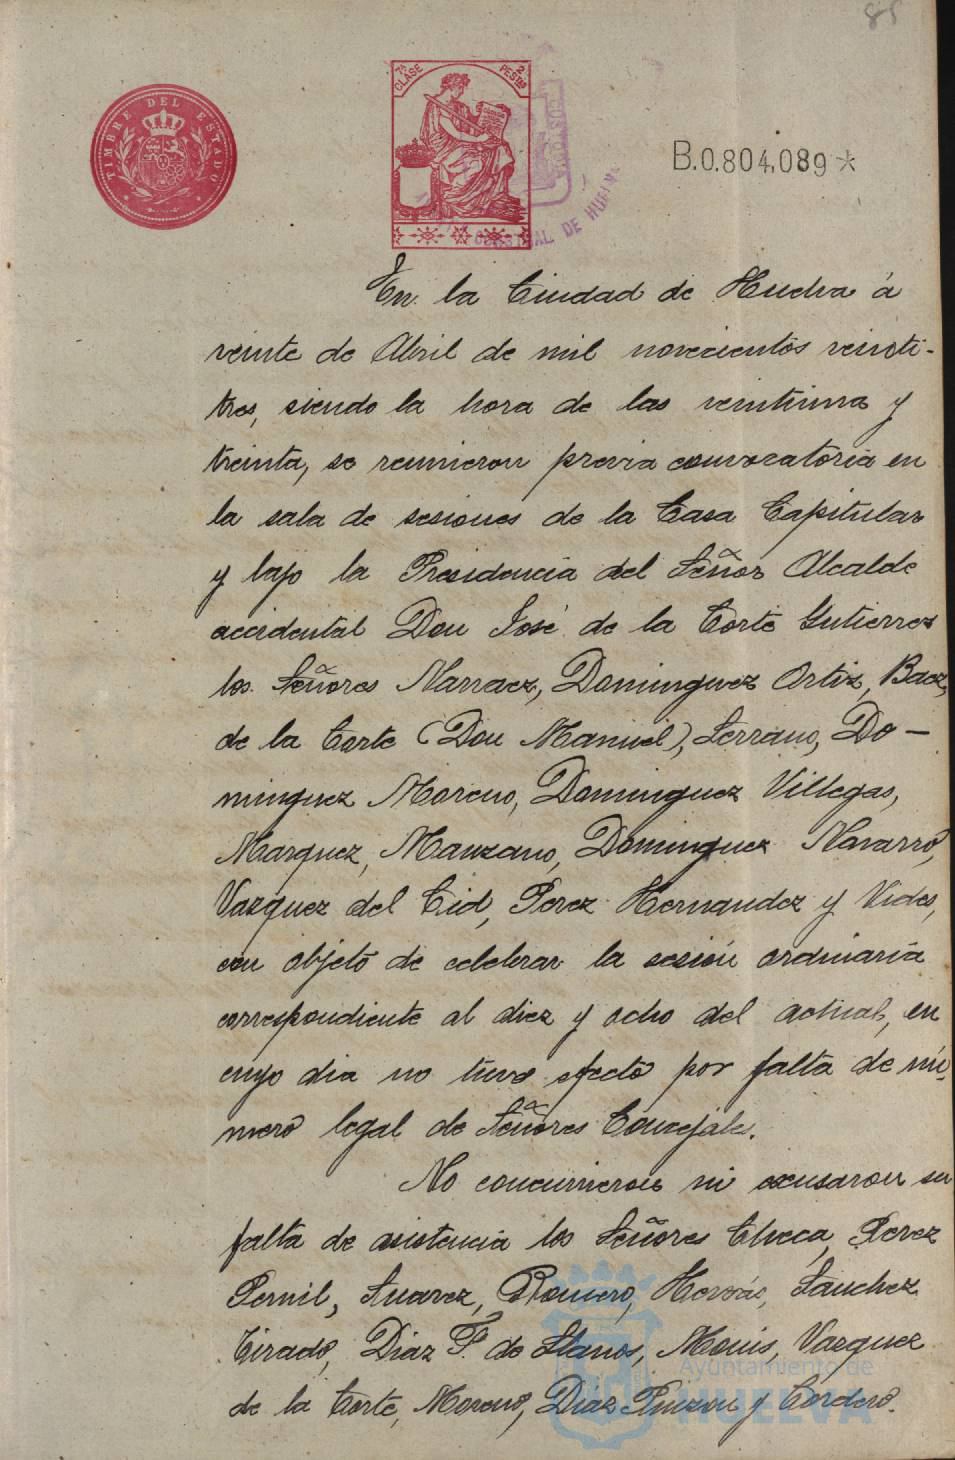 85
TIMBRE DEL ESTADO
7ª CLASE
2 PESTAS
CUSTODIA
DE HUELVA
B.0.804,089*
En la Ciudad de Huelva á
veinte de Abril de mil novecientos veinti-
tres, siendo la hora de las veintiuna y
treinta, se reunieron previa convocatoria en
la sala de sesiones de la Casa Capitular
y bajo la Presidencia del Señor Alcalde
accidental Don José de la Corte Gutierrez
los Señores Narraez, Dominguez Ortiz, Baez,
de la Corte (Don Manuel), Serrano, Do-
minguez Moreno, Dominguez Villegas,
Marquez, Manzano, Dominguez Navarro,
Vazquez del Cid, Perez Hernandez y Vides,
con objeto de celebrar la sesión ordinaria
correspondiente al diez y ocho del actual, en
cuyo dia no tuvo efecto por falta de nú-
mero legal de Señores Concejales.
No concurrieron ni excusaron su
falta de asistencia los Señores Checa, Perez
Pernil, Suarez, Romero, Hervás, Sanchez
Tirado, Diaz F. de Llanos, Mouis, Vazquez
de la Corte, Moreno, Diaz Pinzon y Cordero.
Ayuntamiento de
HUELVA